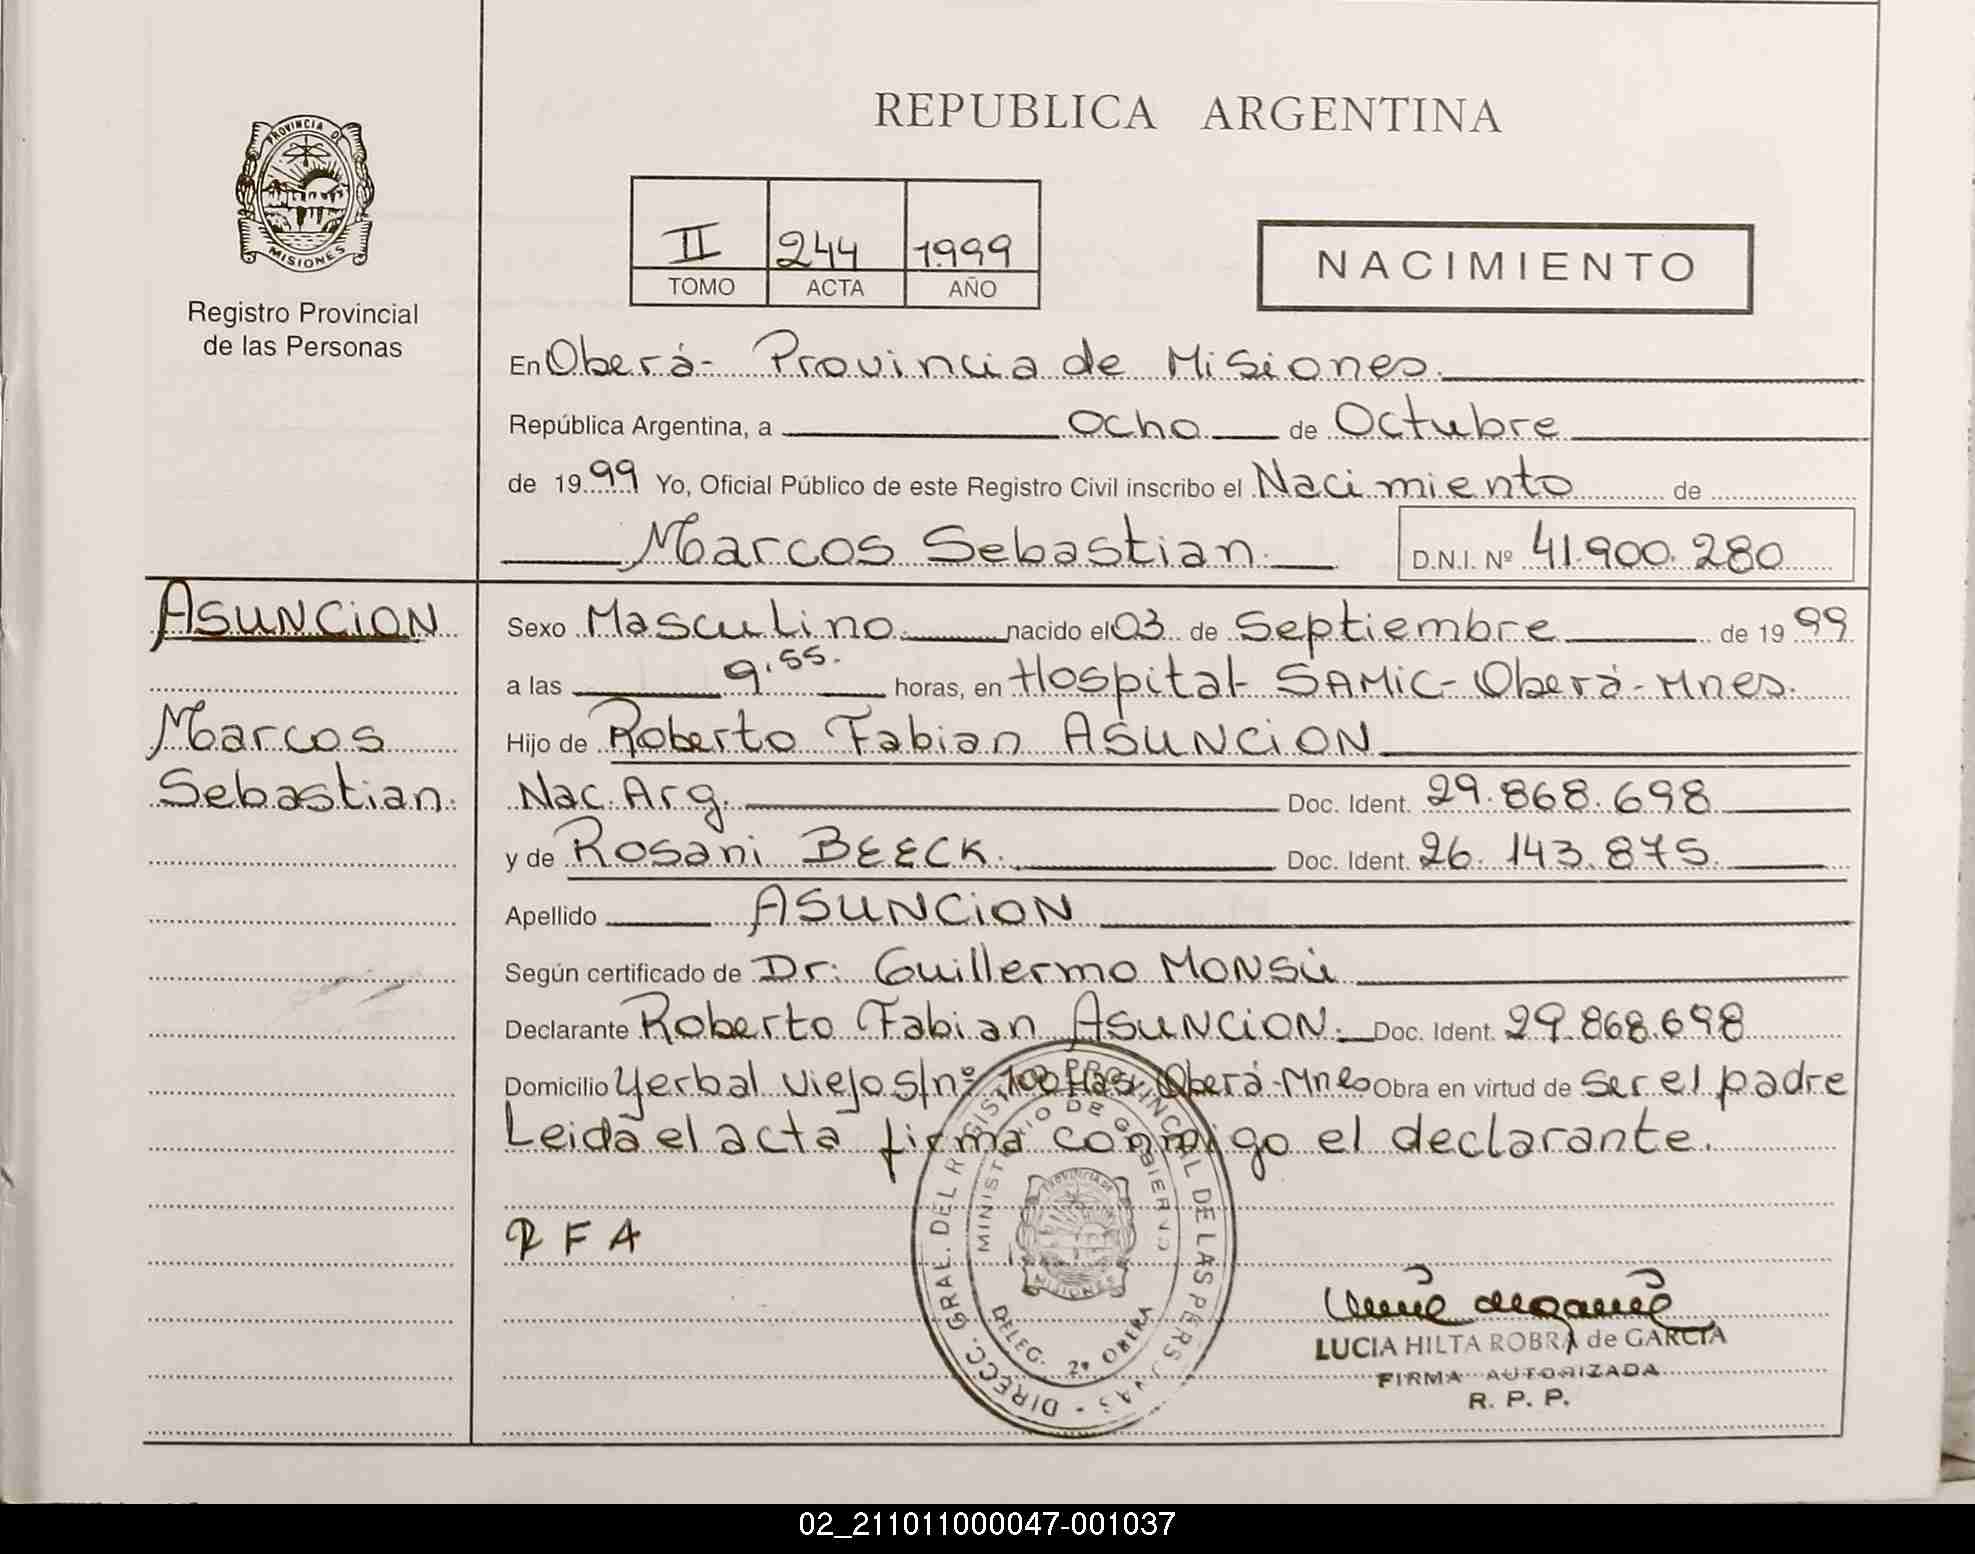 REPUBLICA ARGENTINA
PROVINCIA DE
MISIONES
Registro Provincial
de las Personas
II 244 1999
TOMO ACTA AÑO
NACIMIENTO
En Oberá- Provincia de Misiones.
República Argentina, a Ocho de Octubre
de 1999 Yo, Oficial Público de este Registro Civil inscribo el Nacimiento de
Marcos Sebastian. D.N.I. Nº 41.900.280
ASUNCION
Marcos
Sebastian.
Sexo Masculino nacido el 03 de Septiembre de 1999
a las 9'55. horas, en Hospital SAMIC-Oberá-Mnes.
Hijo de Roberto Fabian ASUNCION
Nac. Arg. Doc. Ident. 29.868.698
y de Rosani BEECK. Doc. Ident. 26.143.875.
Apellido ASUNCION
Según certificado de Dr: Guillermo MONSÚ
Declarante Roberto Fabian ASUNCION. Doc. Ident. 29.868.698
Domicilio Yerbal Viejo s/nº 100 Has Oberá-Mnes Obra en virtud de ser el padre
Leida el acta firma conmigo el declarante.
R F A
DIRECC. GRAL. DEL REGISTRO PROVINCIAL DE LAS PERSONAS -
MINISTERIO DE GOBIERNO
PROVINCIA DE
MISIONES
DELEG. 2ª OBERA
LUCIA HILTA ROBRA de GARCIA
FIRMA AUTORIZADA
R. P. P.
02_211011000047-001037